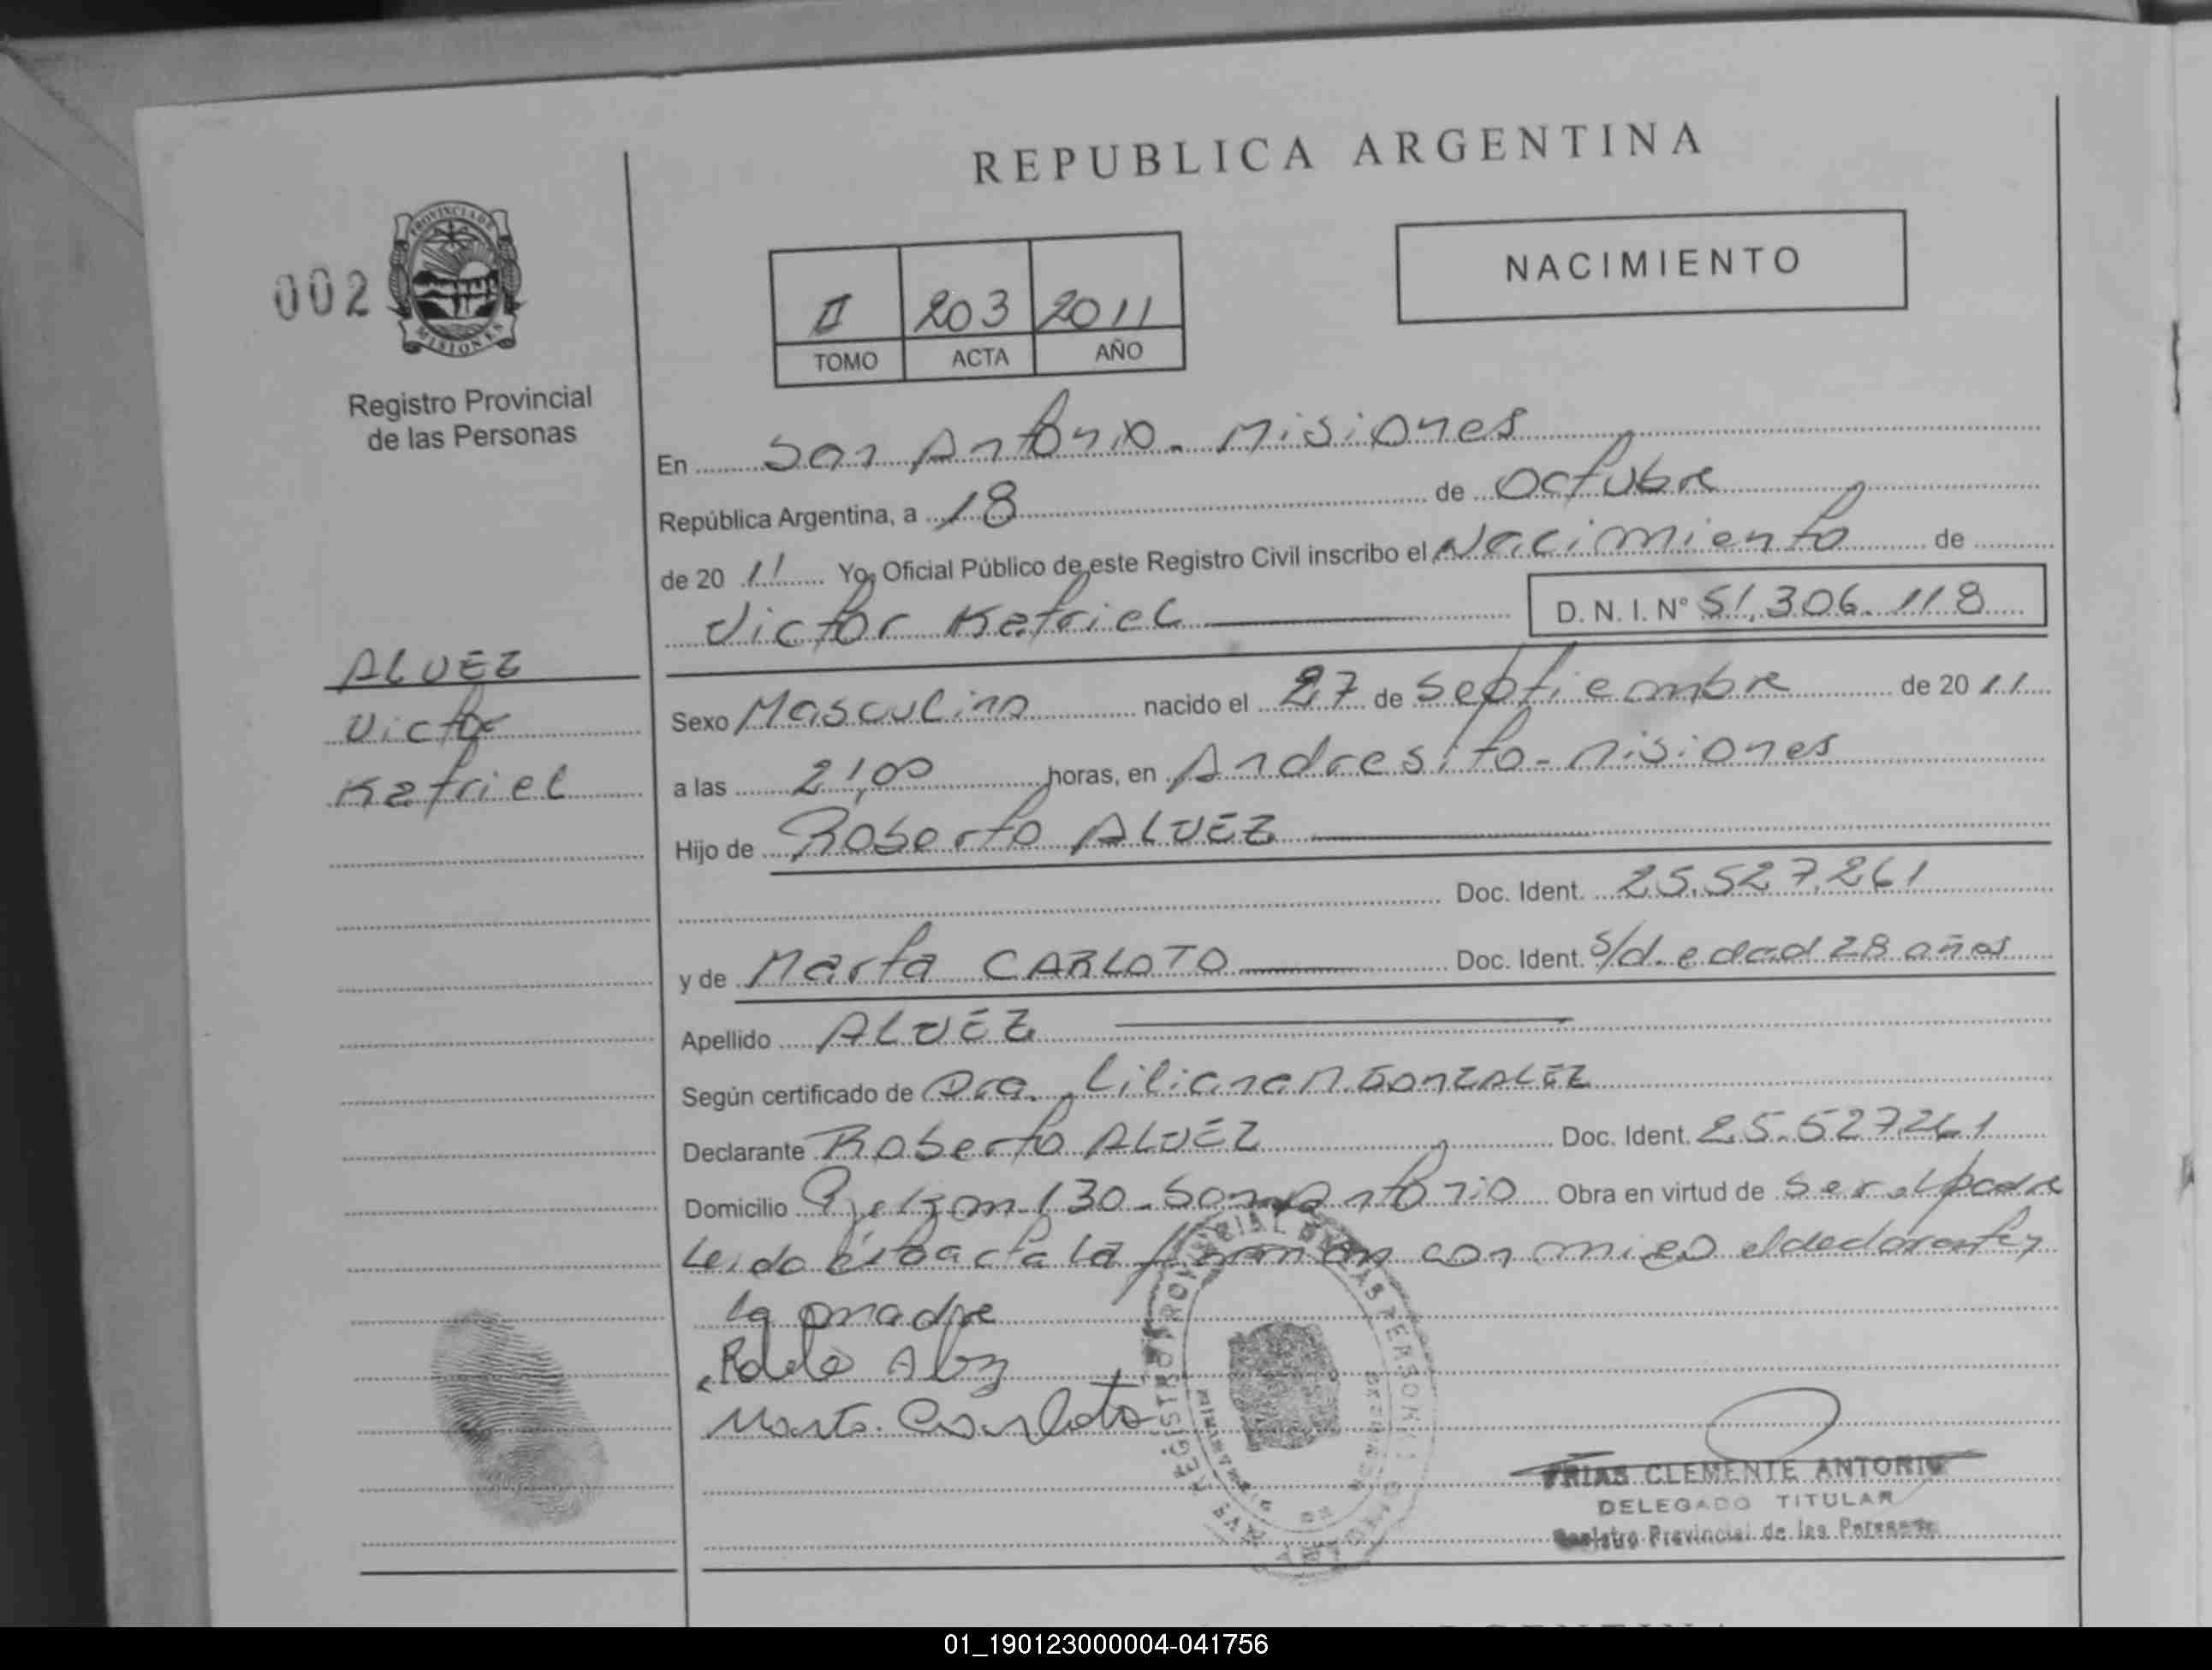 REPUBLICA ARGENTINA
NACIMIENTO
002
PROVINCIA DE
MISIONES
Registro Provincial
de las Personas
II 203 2011
TOMO ACTA AÑO
En San Antonio - Misiones
República Argentina, a 18 de Octubre
de 20 11 Yo, Oficial Público de este Registro Civil inscribo el Nacimiento de
Victor Kefriel D. N. I. N° 51.306.118
ALVEZ
Victor
Kefriel
Sexo Masculino nacido el 27 de Septiembre de 20 11
a las 21,00 horas, en Andresito - Misiones
Hijo de Roberto ALVEZ
Doc. Ident. 25.527.261
y de Marta CARLOTO Doc. Ident. s/d. edad 28 años
Apellido ALVEZ
Según certificado de Dra. Liliana M. GONZALEZ
Declarante Roberto ALVEZ Doc. Ident. 25.527261
Domicilio 130 - San Antonio Obra en virtud de ser el padre
Leida ésta acta la firman con migo el declarante y
la madre
Marta Carloto
REGISTRO PROVINCIAL DE LAS PERSONAS
FRIAS CLEMENTE ANTONIO
DELEGADO TITULAR
Registro Provincial de las Personas
01_190123000004-041756